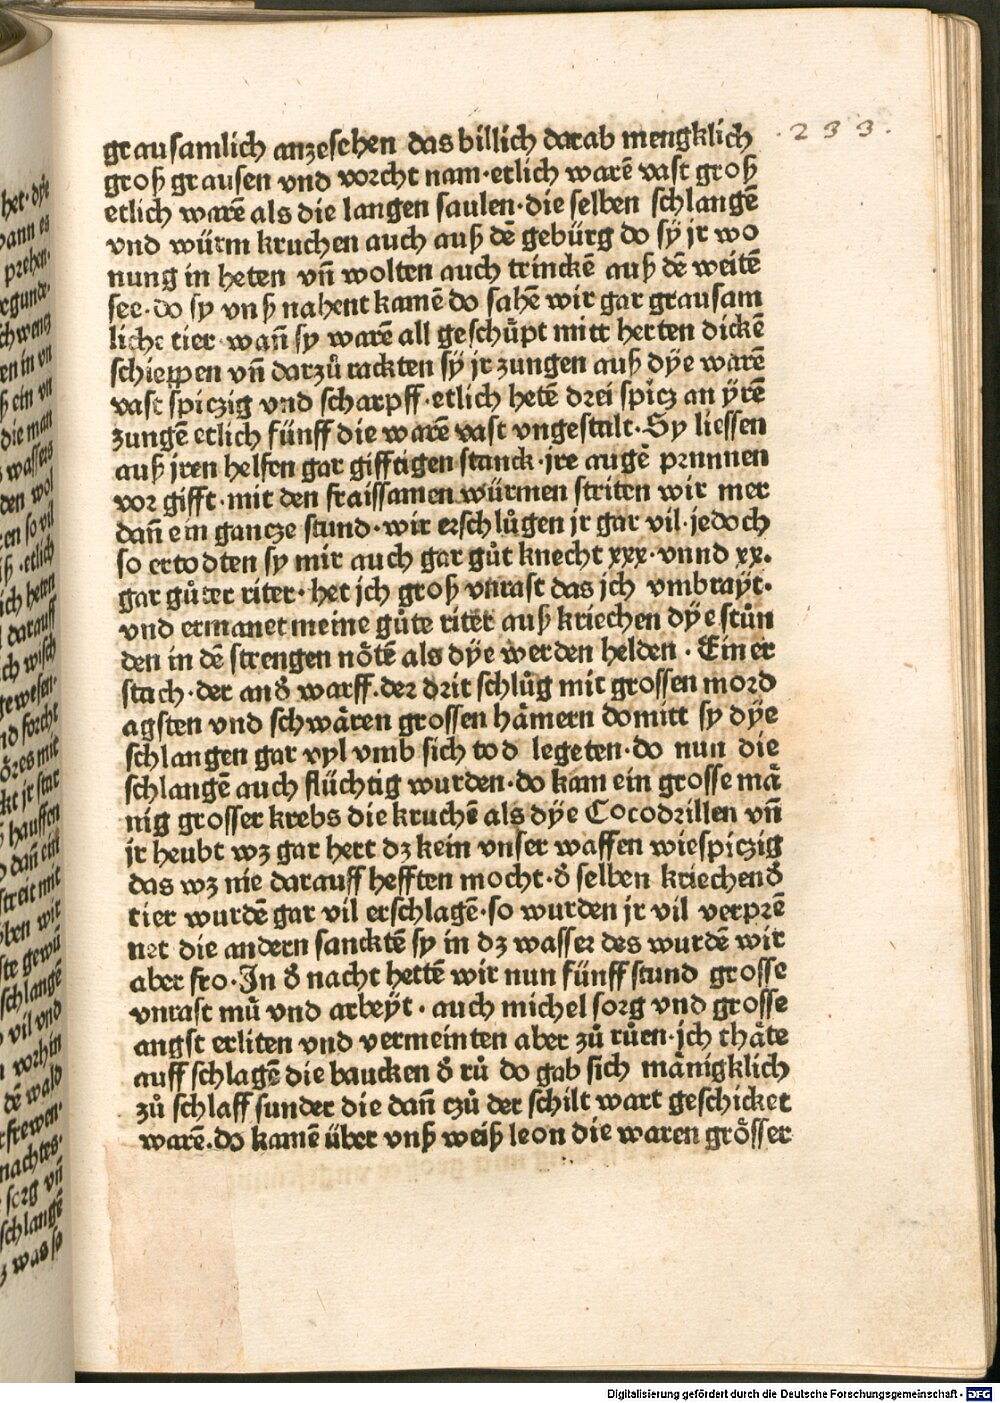 .233.
grausamlich anzesehen das billich darab mengklich
groß grausen vnd vorcht nam·etlich warē vast groß
etlich warē als die langen saulen·die selben schlangē
vnd würm kruchen auch auß dē gebürg do sÿ jr wo
nung in heten vn̄ wolten auch trinckē auß dē weitē
see·do sy vnß nahent kamē do sahē wir gar grausam
liche tier wan̄ sy warē all geschüpt mitt herten dickē
schieppen vn̄ darzů rackten sÿ jr zungen auß dÿe warē
vast spiczig vnd scharpff·etlich hetē drei spicz an ÿrē
zungē etlich fünff die warē vast vngestalt·Sy liessen
auß jren helsen gar gifftigen stanck·jre augē prunnen
vor gifft·mit den fraissamen würmen striten wir mer
dan̄ ein gancze stund·wir erschlůgen jr gar vil·jedoch
so ertodten sy mir auch gar gůt knecht xxx·vnnd xx.
gar gůter riter·het jch groß vnrast das jch vmbraÿt·
vnd ermanet meine gůte riter auß kriechen dÿe stůn
den in dē strengen nötē als dÿe werden helden·Einer
stach·der and̓ warff·der drit schlůg mit grossen mord
agsten vnd schwären grossen hämern domitt sy dÿe
schlangen gar vyl vmb sich tod legeten·do nun die
schlangē auch flüchtig wurden·do kam ein grosse mä
nig grosser krebs die kruchē als dÿe Cocodrillen vn̄
jr heubt wz gar hert dz kein vnser waffen wiespiczig
das wz nie darauff hefften mocht·d̓ selben kriechend̓
tier wurdē gar vil erschlagē·so wurden jr vil verprē
net die andern sancktē sy in dz wasser des wurdē wir
aber fro·In d̓ nacht hettē wir nun fünff stund grosse
vnrast mů vnd arbeÿt·auch michel sorg vnd grosse
angst erliten vnd vermeinten aber zů růen·jch thäte
auff schlagē die baucken d̓ rů do gab sich mänigklich
zů schlaff sunder die dan̄ czů der schilt wart geschicket
warē·do kamē über vnß weiß leon die waren grösser
Digitalisierung gefördert durch die Deutsche Forschungsgemeinschaft - DFG